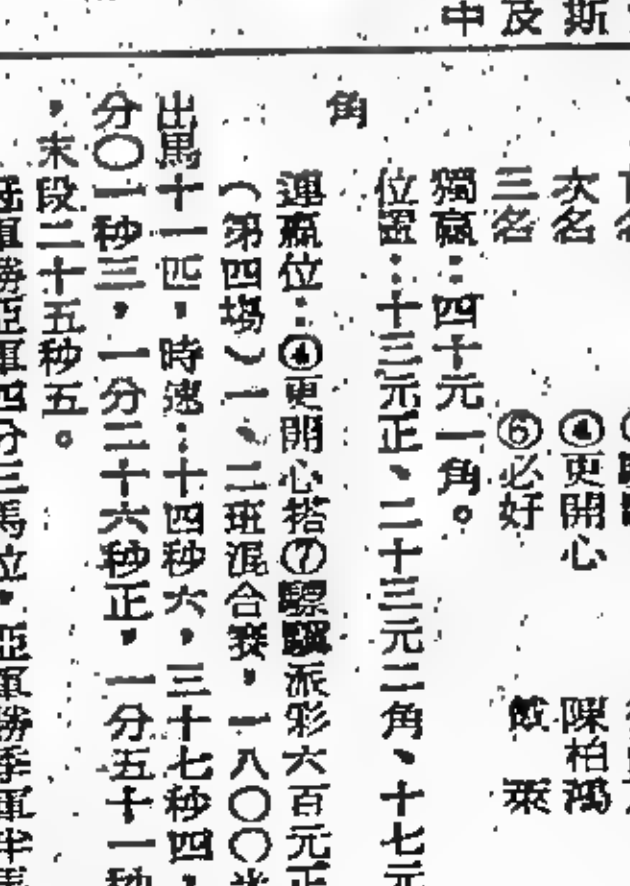 斯
及
中
次名 ④更開心 陳柏鴻
三名 ⑥必好
獨贏：四十元一角。
位置：十三元正、二十三元二角、十七元
角
連贏位：④更開心搭⑦驃驥派彩六百元正
（第四場）一、二班混合賽，一八〇〇米
出馬十一匹，時速：十四秒六，三十七秒四，
分〇一秒三，一分二十六秒正，一分五十一秒
，末段二十五秒五。
冠軍勝亞軍四分三馬位，亞軍勝季軍半馬